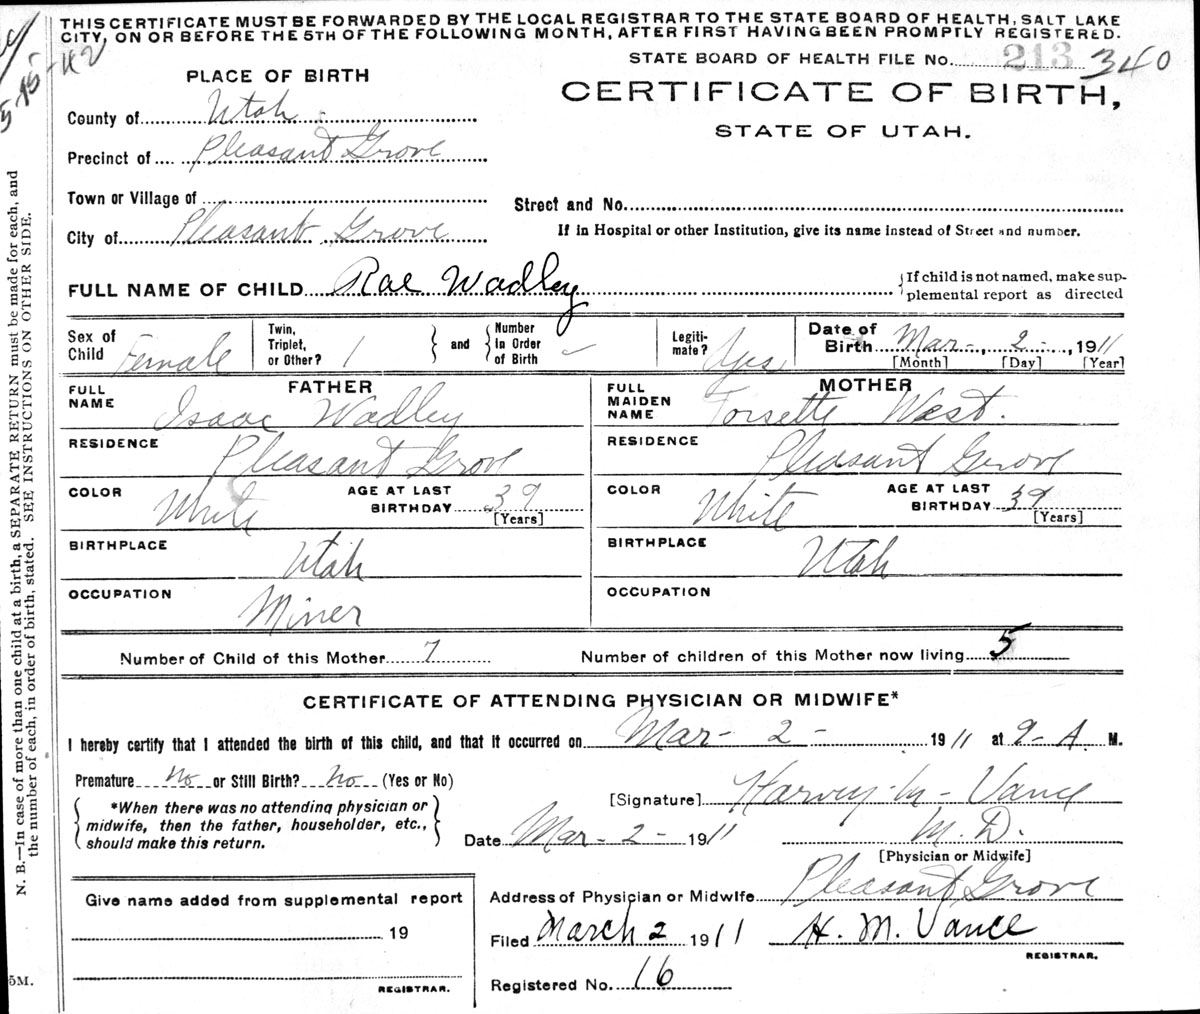 THIS CERTIFICATE MUST BE FORWARDED BY THE LOCAL REGISTRAR TO THE STATE BOARD OF HEALTH, SALT LAKE
CITY, ON OR BEFORE THE 5TH OF THE FOLLOWING MONTH, AFTER FIRST HAVING BEEN PROMPTLY REGISTERED.
STATE BOARD OF HEALTH FILE No. 213 340
PLACE OF BIRTH
CERTIFICATE OF BIRTH,
STATE OF UTAH.
County of Utah
Precinct of Pleasant Grove
Town or Village of
Street and No.
City of Pleasant Grove
If in Hospital or other Institution, give its name instead of Street and number.
FULL NAME OF CHILD Rae Wadley
{If child is not named, make sup-
plemental report as directed
Sex of Child Female
Twin, Triplet, or Other? 1 } and { Number In Order of Birth ✓
Legiti-mate? Yes
Date of Birth Mar - , 2 - , 1911
[Month] [Day] [Year]
FATHER
FULL NAME Isaac Wadley
MOTHER
FULL MAIDEN NAME Torsette West.
RESIDENCE Pleasant Grove
RESIDENCE Pleasant Grove
COLOR White AGE AT LAST BIRTHDAY 39 [Years]
COLOR White AGE AT LAST BIRTHDAY 39 [Years]
BIRTHPLACE Utah
BIRTHPLACE Utah
OCCUPATION Miner
OCCUPATION
Number of Child of this Mother 7 Number of children of this Mother now living 5
CERTIFICATE OF ATTENDING PHYSICIAN OR MIDWIFE*
I hereby certify that I attended the birth of this child, and that it occurred on Mar - 2 - 1911 at 9 - A. M.
Premature No or Still Birth? No (Yes or No)
{ *When there was no attending physician or
midwife, then the father, householder, etc.,
should make this return. }
[Signature] Harvey - M - Vance
Date Mar - 2 - 1911 M. D.
[Physician or Midwife]
Address of Physician or Midwife Pleasant Grove
Give name added from supplemental report
19
REGISTRAR.
Filed March 2 1911 H. M. Vance
REGISTRAR.
Registered No. 16
N. B.—In case of more than one child at a birth, a SEPARATE RETURN must be made for each, and
the number of each, in order of birth, stated. SEE INSTRUCTIONS ON OTHER SIDE.
5-15-42
5M.